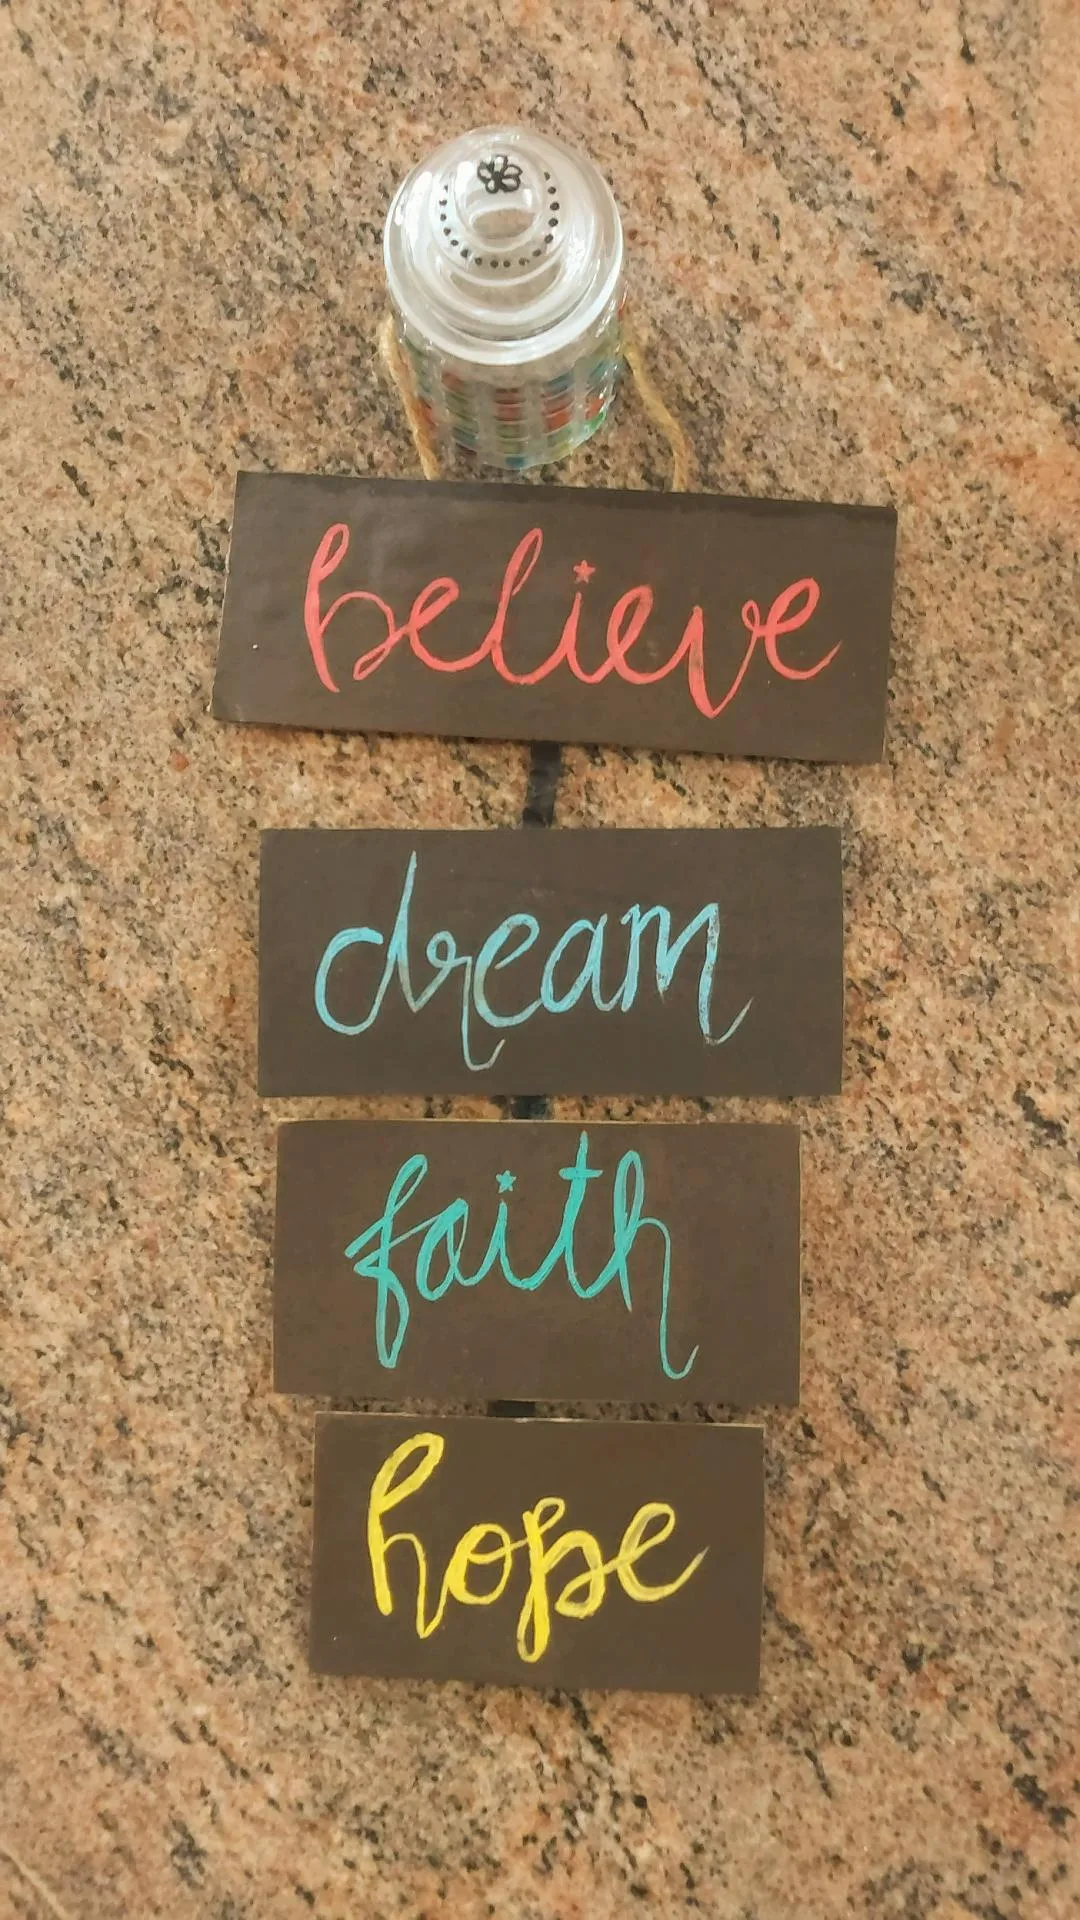 believe
dream
faith
hope